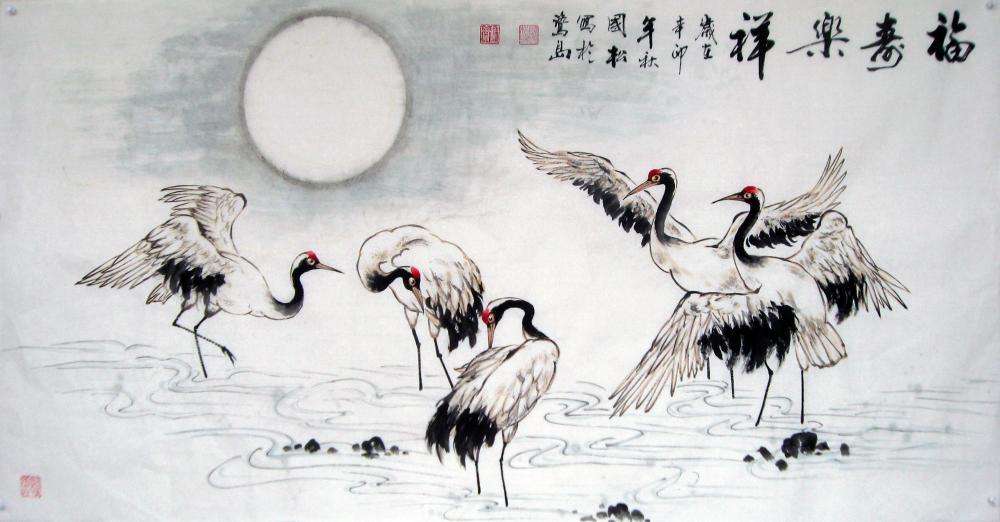 福壽樂祥
歲在
辛卯
年秋
國松
寫於
鷺島